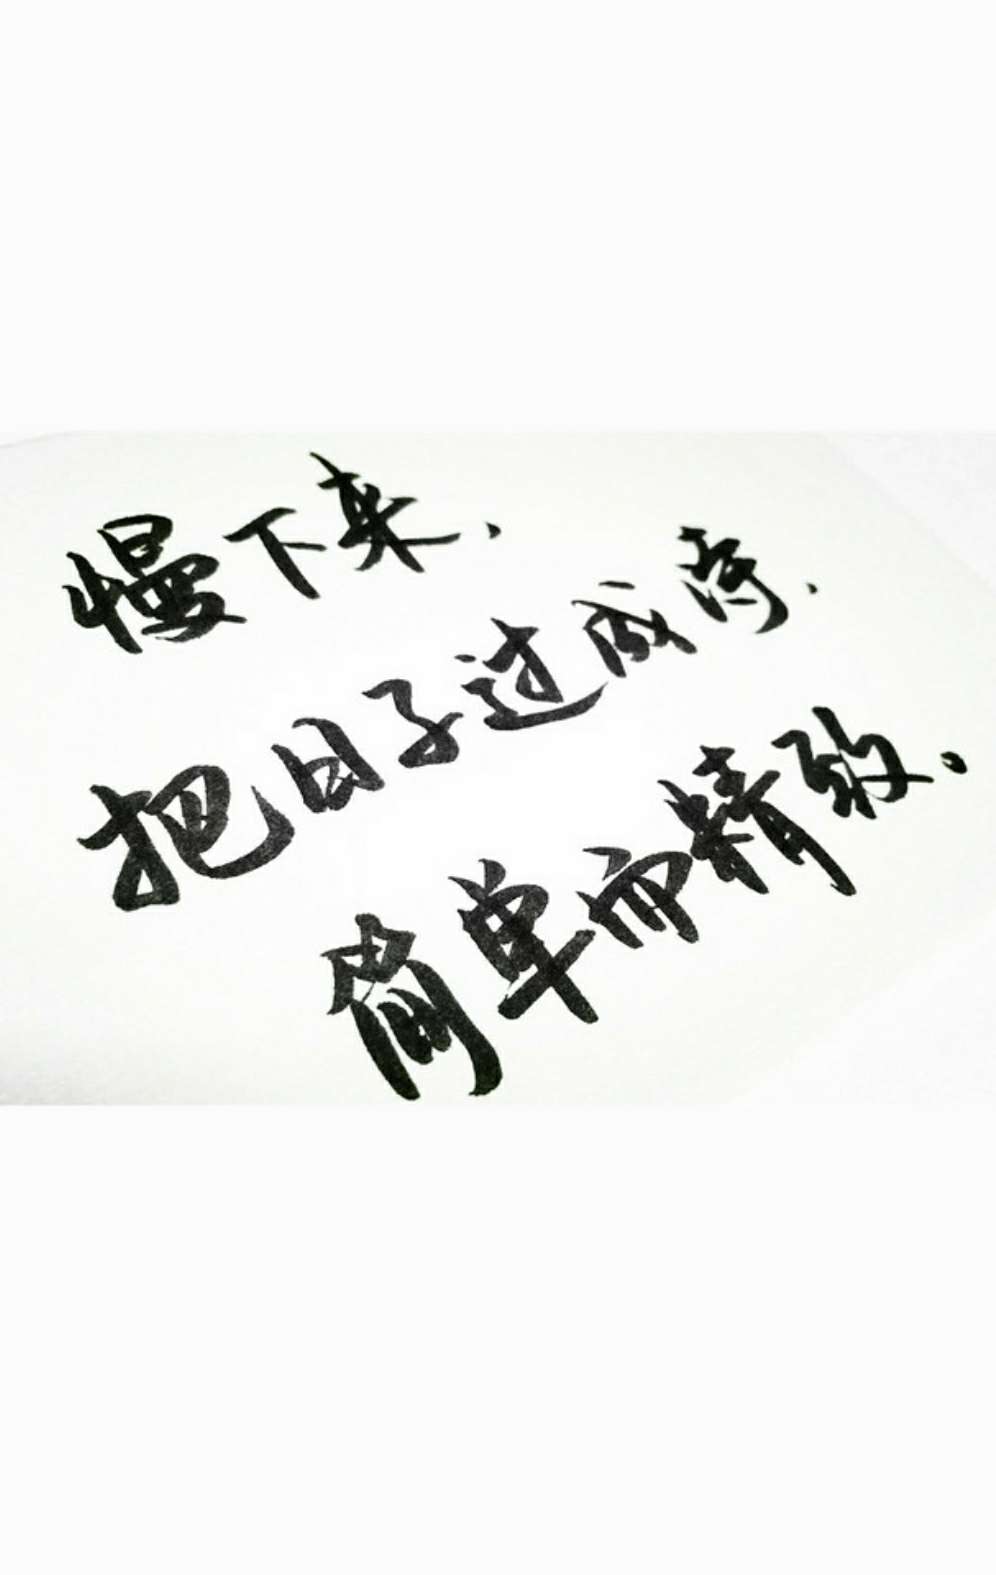 慢下来，
把日子过成诗，
简单而精致。